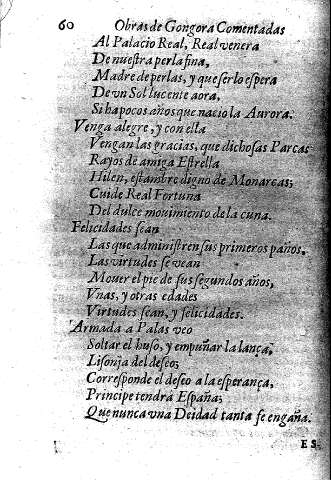 60 Obras de Gongora Comentadas
Al Palacio Real, Real venera
De nuestra perla fina,
Madre de perlas, y que serlo espera
De vn Sol lucente aora,
Si ha pocos años que nacio la Aurora.
Venga alegre, y con ella
Vengan las gracias, que dichosas Parcas
Rayos de amiga Estrella
Hilen, estambre digno de Monarcas;
Cuide Real Fortuna
Del dulce mouimiento de la cuna.
Felicidades sean
Las que administren sus primeros paños,
Las virtudes se vean
Mouer el pie de sus segundos años,
Vnas, y otras edades
Virtudes sean, y felicidades.
Armada a Palas veo
Soltar el huso, y empuñar la lança,
Lisonja del deseo;
Corresponde el deseo a la esperança,
Principe tendrà España;
Que nunca vna Deidad tanta fe engaña.
ES.